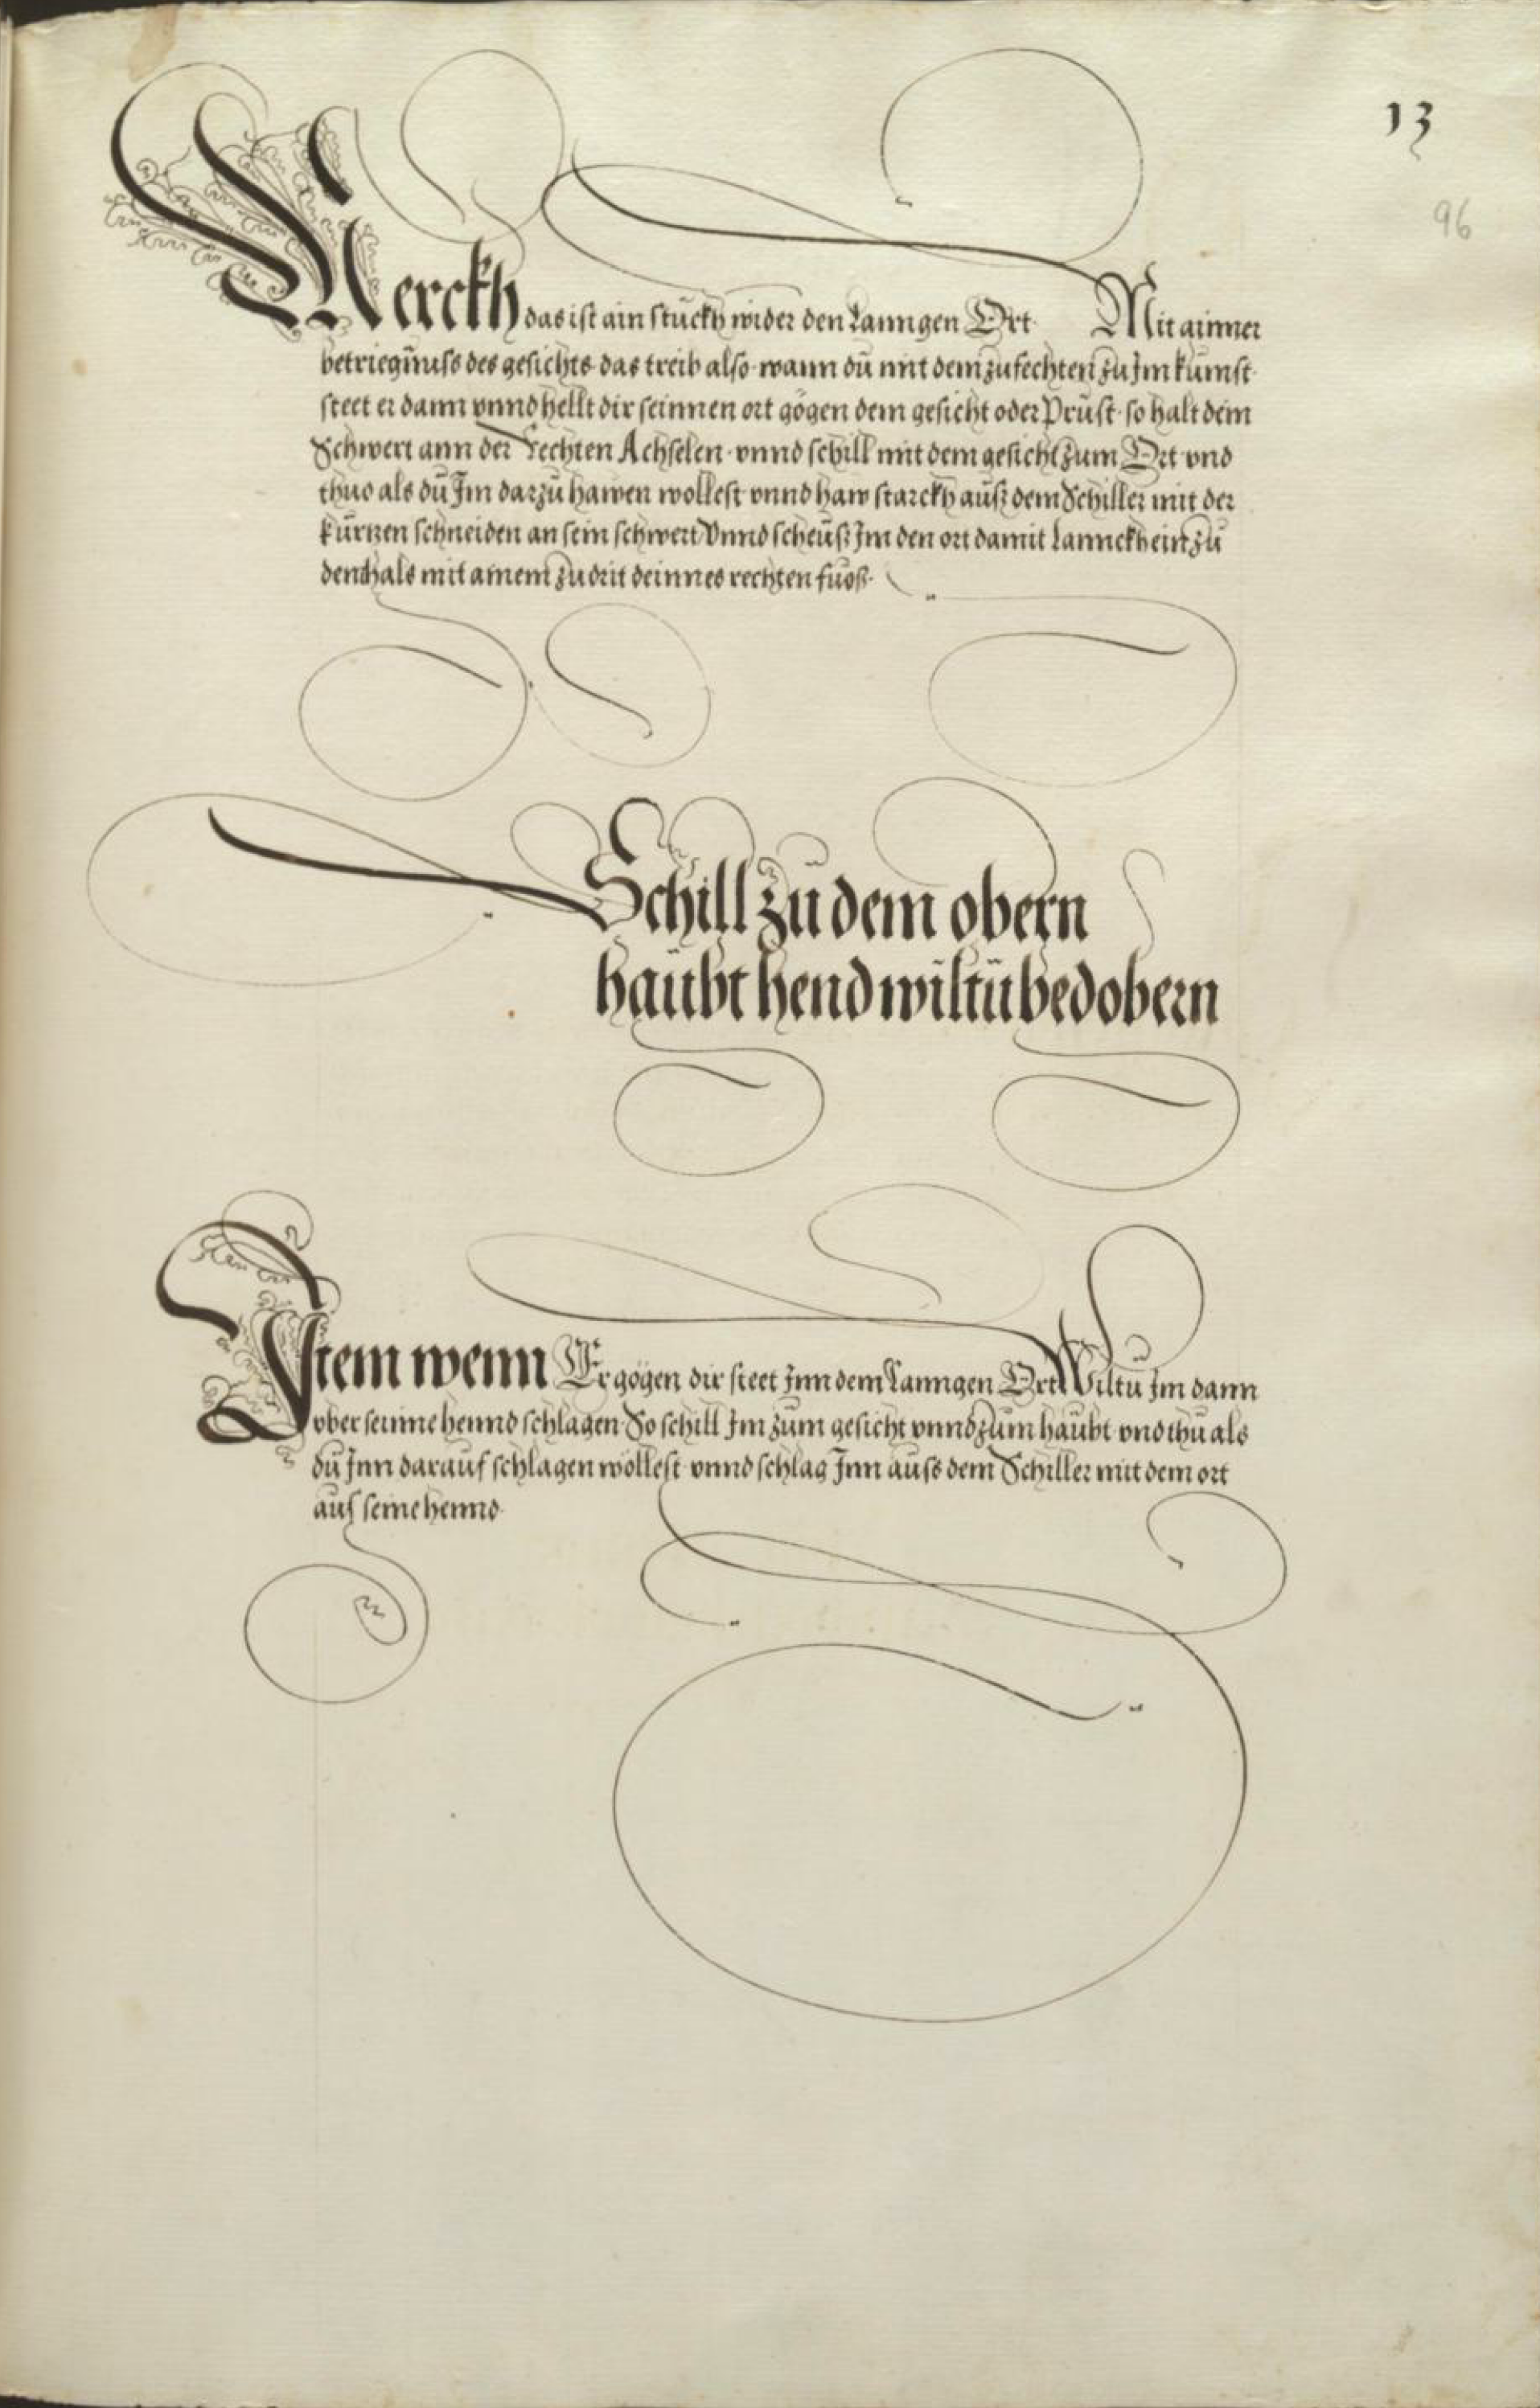 13
96
Merckh das ist ain stuckh wider den Lanngen Ort Mit ainner
betriegnuss des gesichts das treib also wann du mit dem zufechten zu Jm kumst
steet er dann vnnd hellt dir seinnen ort gögen dem gesicht oder Prust so halt dein
Schwert ann der Rechten Achselen vnnd schill mit dem gesicht zum Ort vnd
thue als du Jm darzu hawen wollest vnnd haw starckh aus dem Schiller mit der
kurtzen schneiden an sein schwert Vnnd scheüs Jm den ort damit Lannckh ein zu
dem hals mit ainem zudrit deinnes rechten fuoss
Schill zu dem obern
haübt hend wiltü bedobern
Jtem wenn Er gögen dir steet Jnn dem Lanngen Ort Wiltu Jm dann
ober seinne hennd schlagen So schill Jm zum gesicht vnnd zum haubt vnd thu als
du Jnn darauf schlagen wöllest vnnd schlag Jnn auss dem Schiller mit dem ort
auf seine hennd